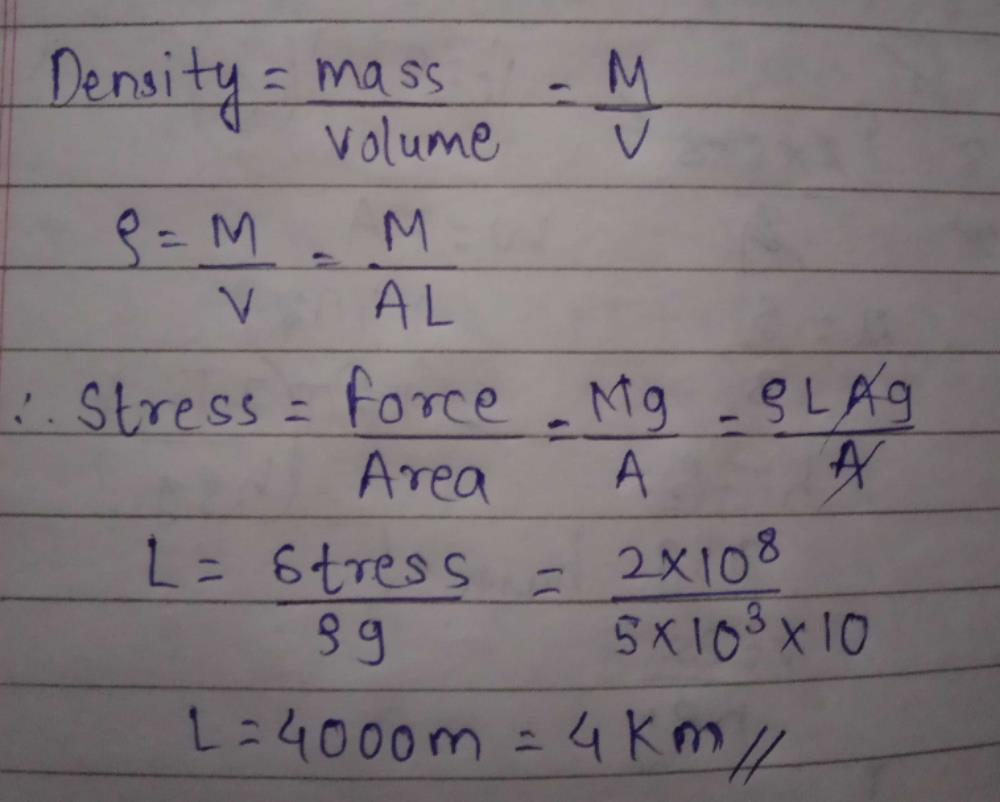 Density = mass / volume = M / V
ρ = M / V = M / AL
∴ Stress = force / Area = Mg / A = ρLAg / A
L = Stress / ρg = 2×10⁸ / 5×10³×10
L = 4000m = 4 Km //